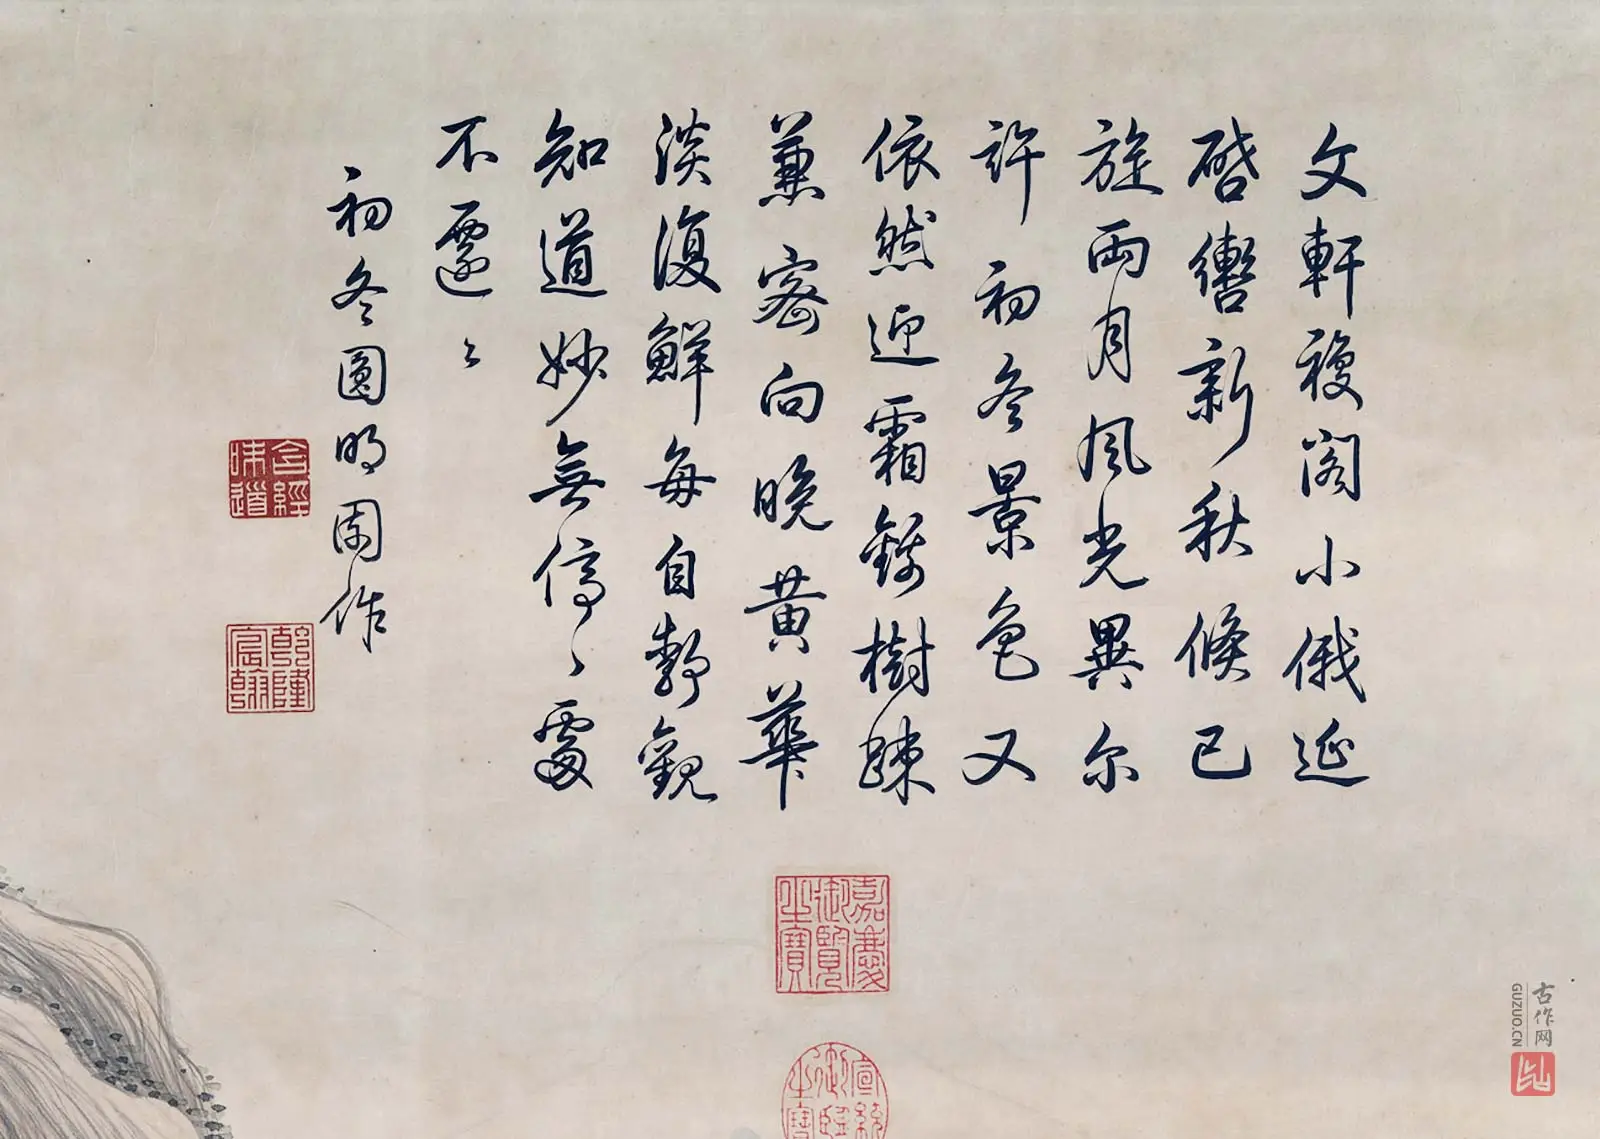 文軒複閣小俄延
啓轡新秋倏已
旋兩月風光異尔
許初冬景色又
依然迎霜錦樹疎
兼密向晚黃華
淡復鮮每自靜觀
知道妙無停〻處
不遷〻
初冬圓明園作
含經味道
乾隆宸翰
嘉慶御覽之寶
宣統御覽之寶
古作网
GUZUO.CN